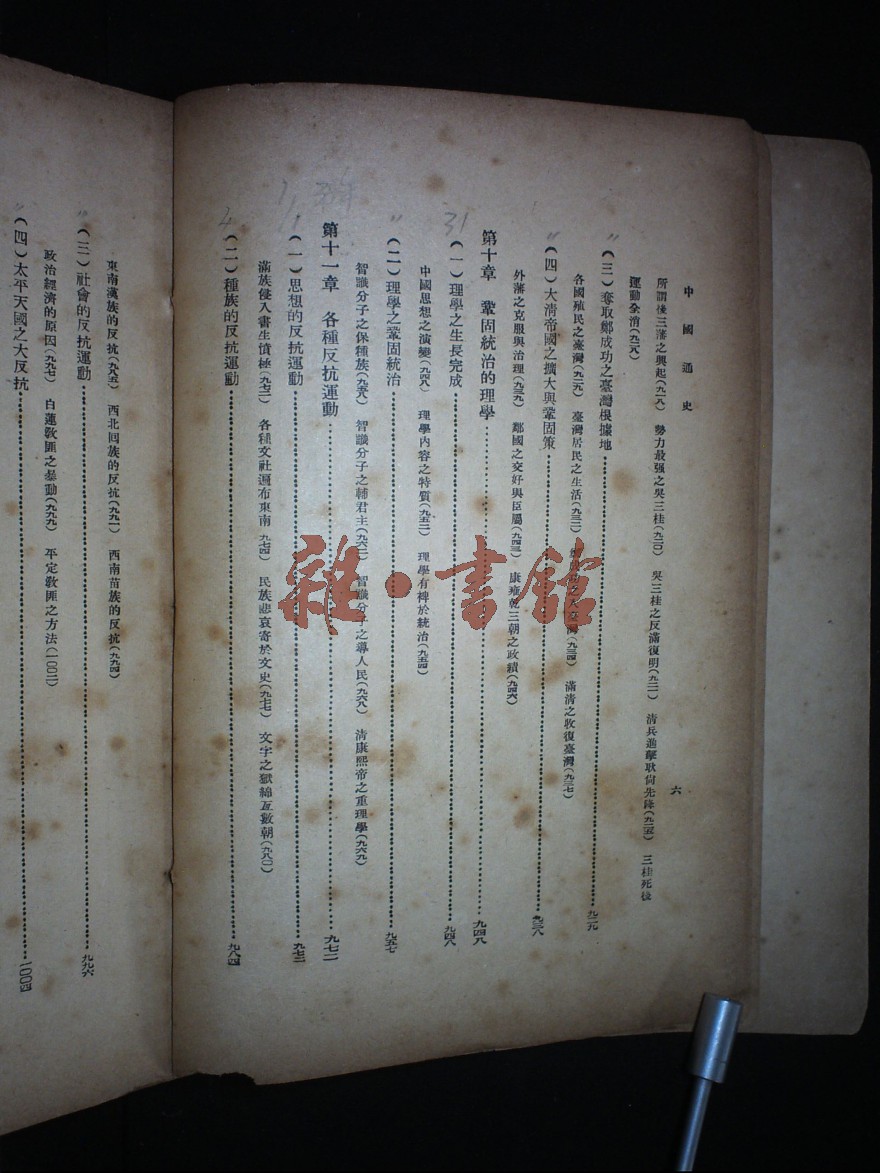 中國通史
六
所謂後三藩之興起(九一八) 勢力最强之吳三桂(九二〇) 吳三桂之反滿復明(九二一) 清兵進擊耿尙先降(九二五) 三桂死後
運動全消(九二八)
〃(三)奪取鄭成功之臺灣根據地……九二九
各國殖民之臺灣(九二九) 臺灣居民之生活(九三二) 之入臺灣(九三四) 滿清之收復臺灣(九三七)
〃(四)大淸帝國之擴大與鞏固策……九三八
外藩之克服與治理(九三九) 鄰國之交好與臣屬(九四三) 康雍乾三朝之政績(九四六)
第十章 鞏固統治的理學……九四八
31(一)理學之生長完成……九四八
中國思想之演變(九四八) 理學內容之特質(九五二) 理學有裨於統治(九五四)
〃(二)理學之鞏固統治……九五七
智識分子之保種族(九五八) 智識分子之輔君主(九六二) 智識分子之導人民(九六八) 清康熙帝之重理學(九六九)
第十一章 各種反抗運動……九七二
(一)思想的反抗運動……九七二
滿族侵入書生憤極(九七二) 各種文社遍布東南(九七四) 民族悲哀寄於文史(九七七) 文字之獄綿亙數朝(九八〇)
4(二)種族的反抗運動……九八四
東南漢族的反抗(九八五) 西北回族的反抗(九九一) 西南苗族的反抗(九九四)
〃(三)社會的反抗運動……九九六
政治經濟的原因(九九七) 白蓮敎匪之暴動(九九九) 平定敎匪之方法(一〇〇二)
〃(四)太平天國之大反抗……一〇〇四
雜·書館